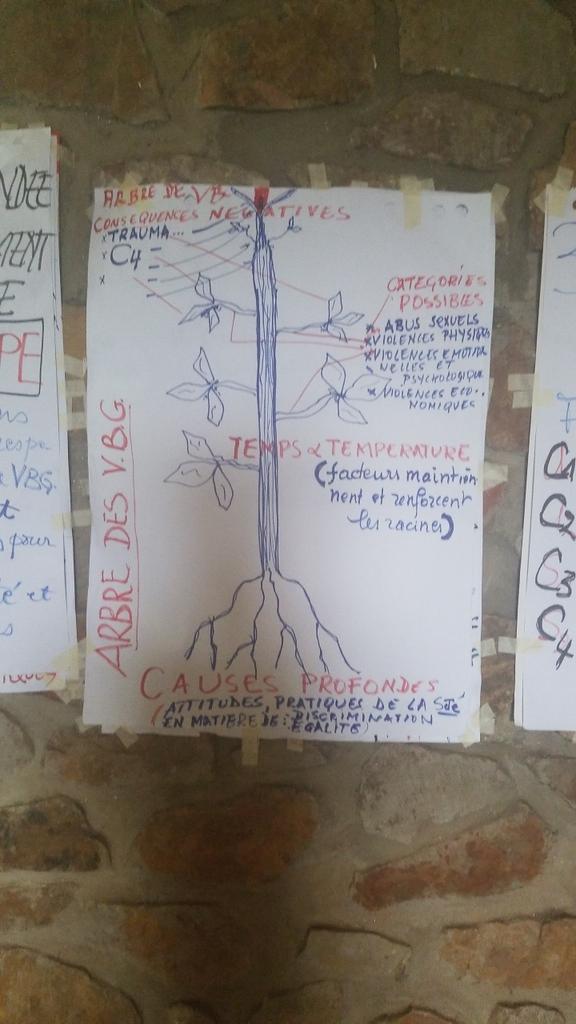 NDEE
MENT
E
PE
VBG
et
pour
té et
s
ARBRE DE VB
CONSEQUENCES NEGATIVES
x TRAUMA...
x C4 -
x -
CATEGORIES
POSSIBLES
x ABUS SEXUELS
x VIOLENCES PHYSIQ
x VIOLENCES EMOTION
NELLES ET
PSYCHOLOGIQUE
x VIOLENCES ECO..
NOMIQUES
TEMPS & TEMPERATURE
(facteurs maintien
nent et renforcent
les racines)
ARBRE DES V.B.G
CAUSES PROFONDES
(ATTITUDES, PRATIQUES DE LA Sté
EN MATIERE DE: DISCRIMINATION
EGALITE)
C1
C2
C3
C4